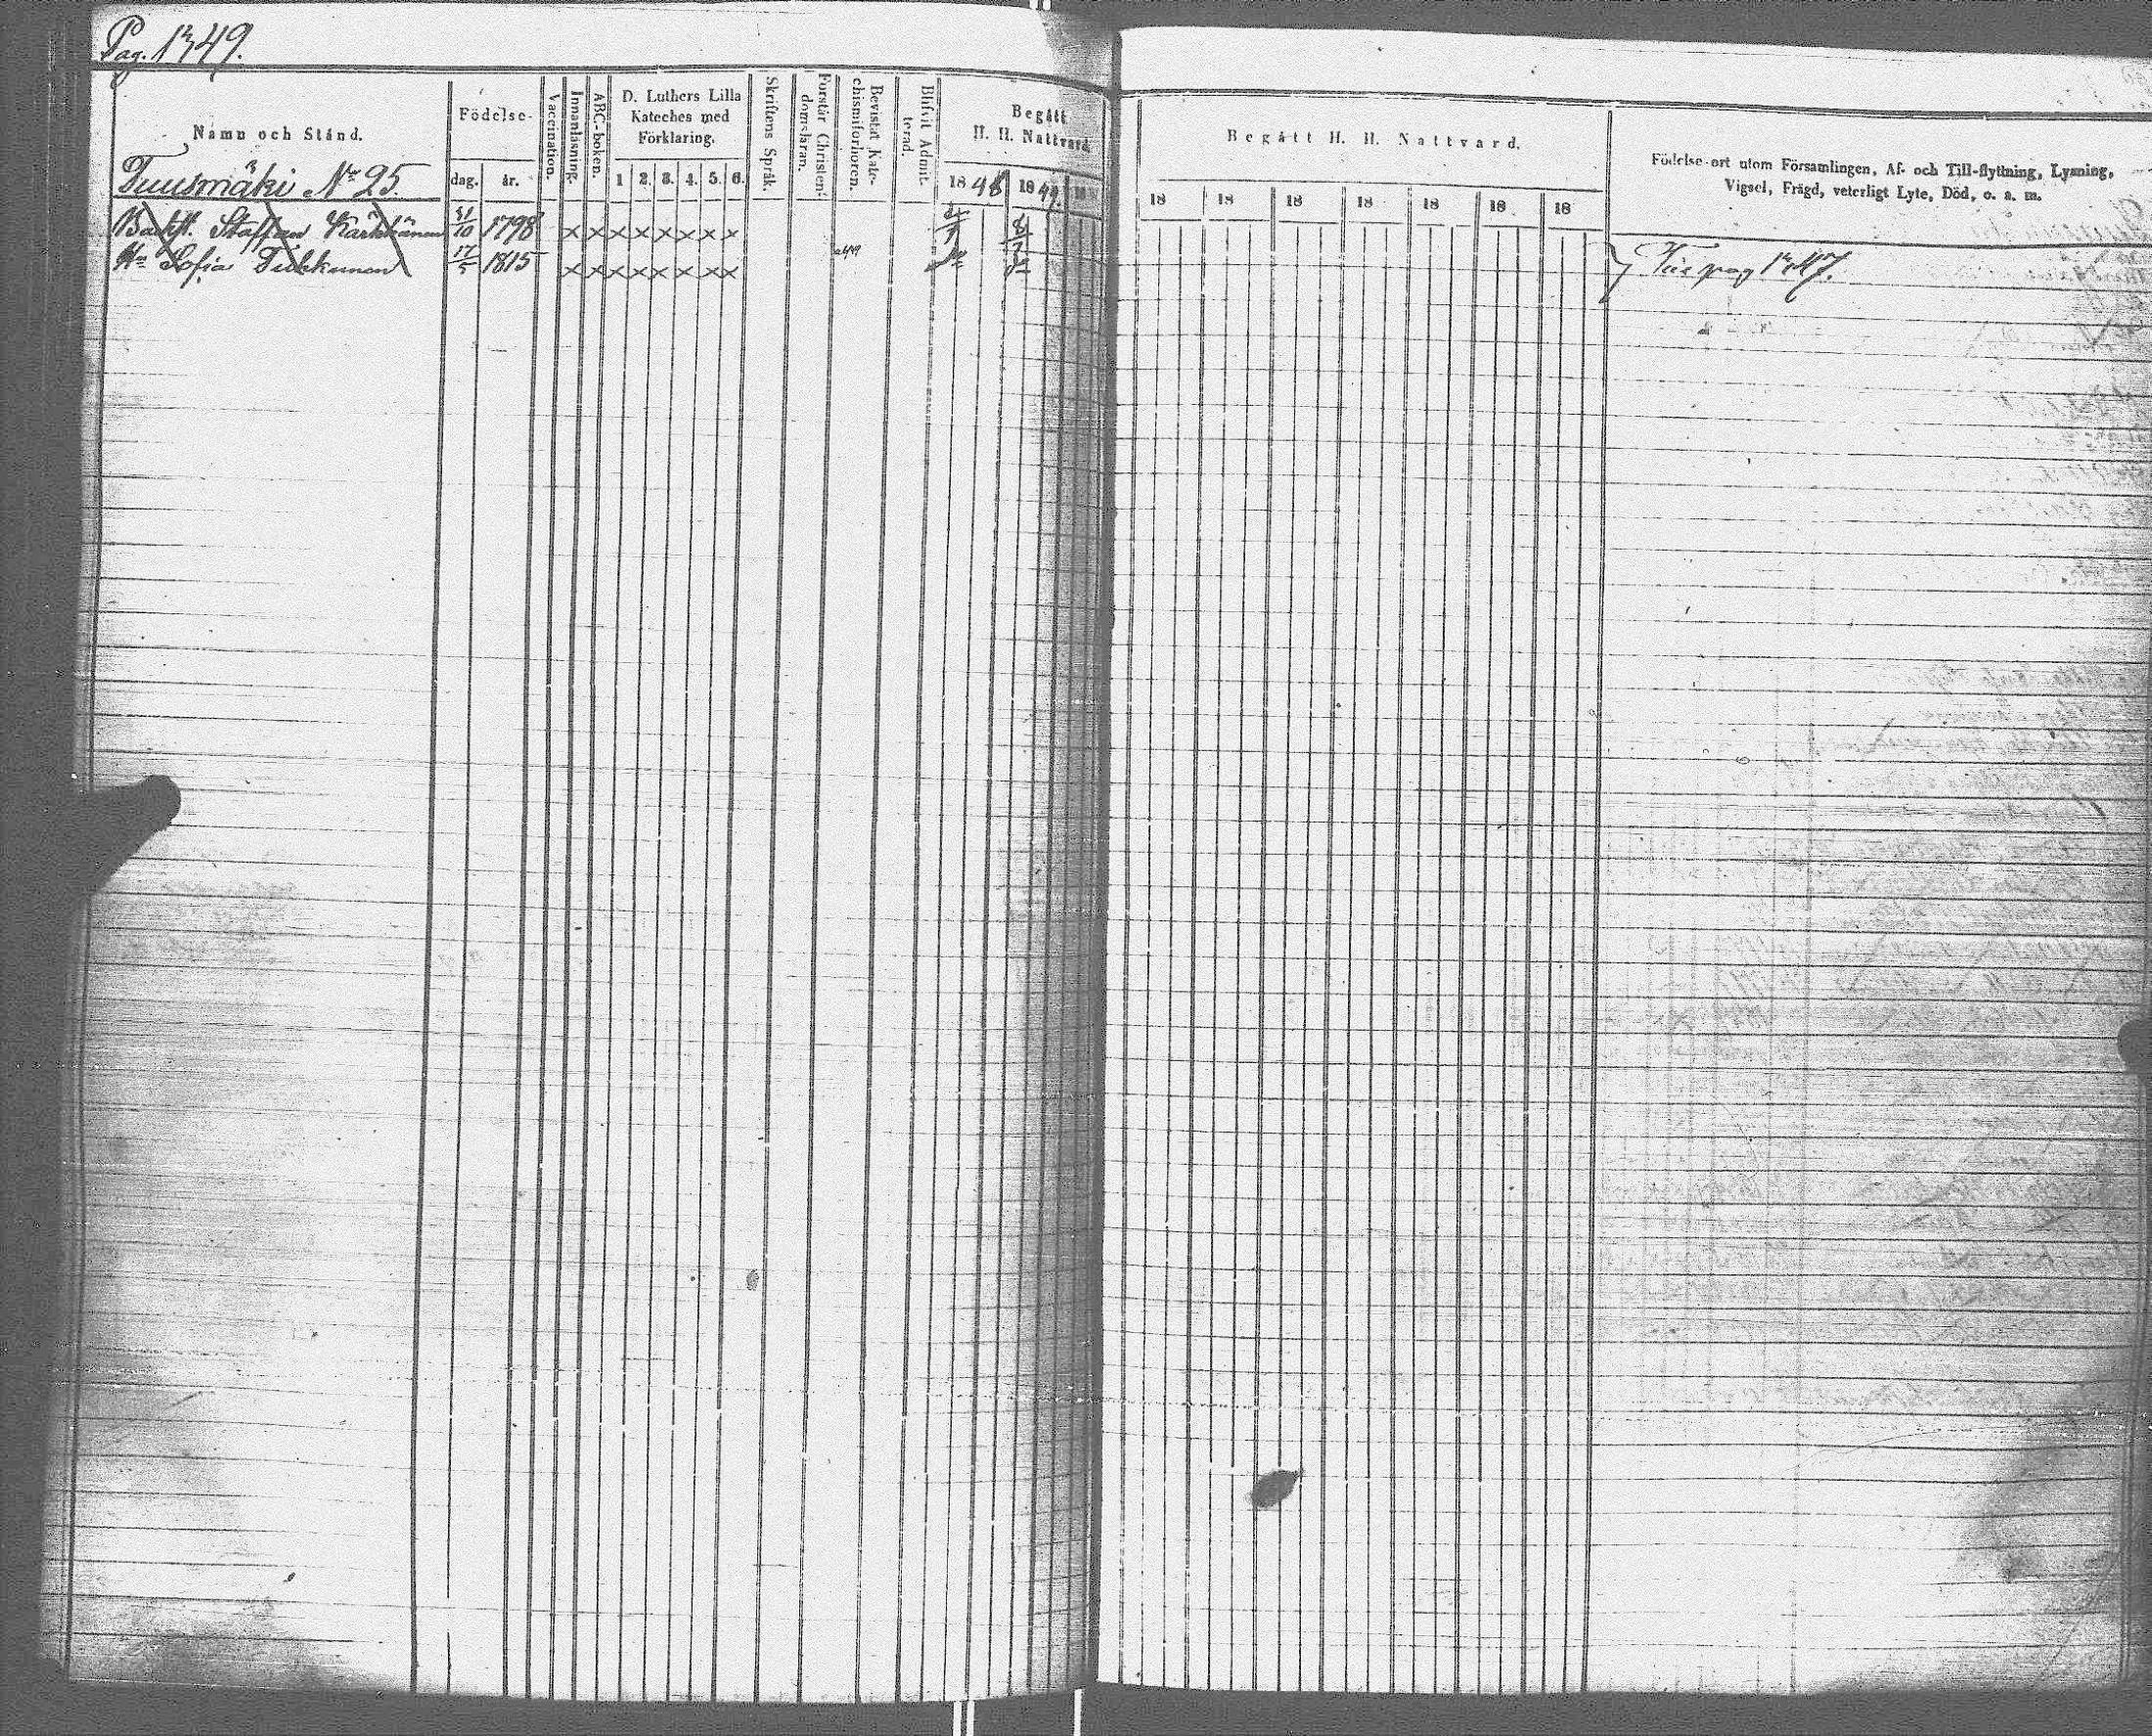 Pag. 1349.
Namn och Stånd.
Födelse-
dag.
år.
Vaccination.
Innanläsning.
ABC-boken.
D. Luthers Lilla
Kateches med
Förklaring.
1 2. 3. 4. 5. 6.
Skriftens Språk.
Förstår Christen-
domsläran.
Bevistat Kate-
chismiförhören.
Blifvit Admit-
terad.
Begått
H. H. Nattvard.
1848 1849. 18
Tuusmäki No 25.
Staffan Kärkkänen 31/10 1798 x x x x x x x x
Hu Sofia Tikkanen 17/5 1815 x x x x x x x x
Begått H. H. Nattvard.
18 18 18 18 18 18 18
Födelse-ort utom Församlingen, Af- och Till-flyttning, Lysning,
Vigsel, Frägd, veterligt Lyte, Död, o. a. m.
pag 1347.